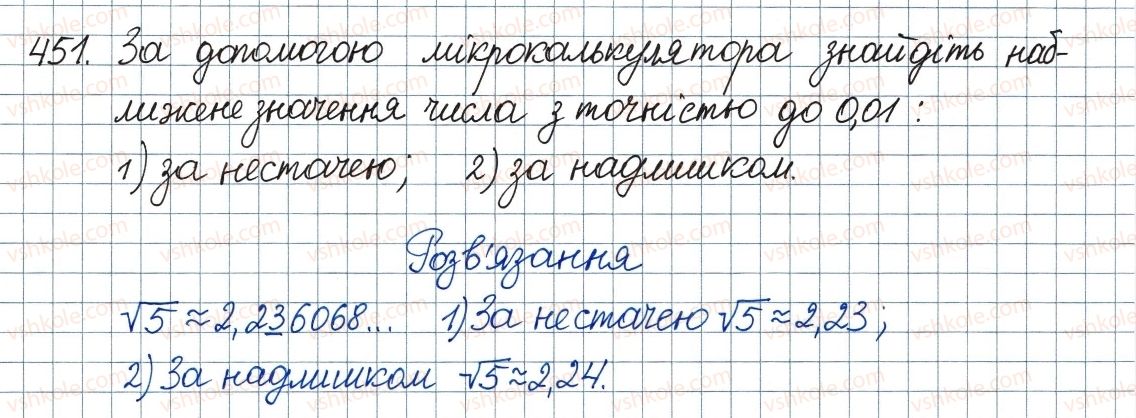 451. За допомогою мікрокалькулятора знайдіть наб-
лижене значення числа з точністю до 0,01 :
1) за нестачею; 2) за надлишком.
Розв'язання
√5 ≈ 2,236068... 1) За нестачею √5 ≈ 2,23 ;
2) За надлишком √5 ≈ 2,24.